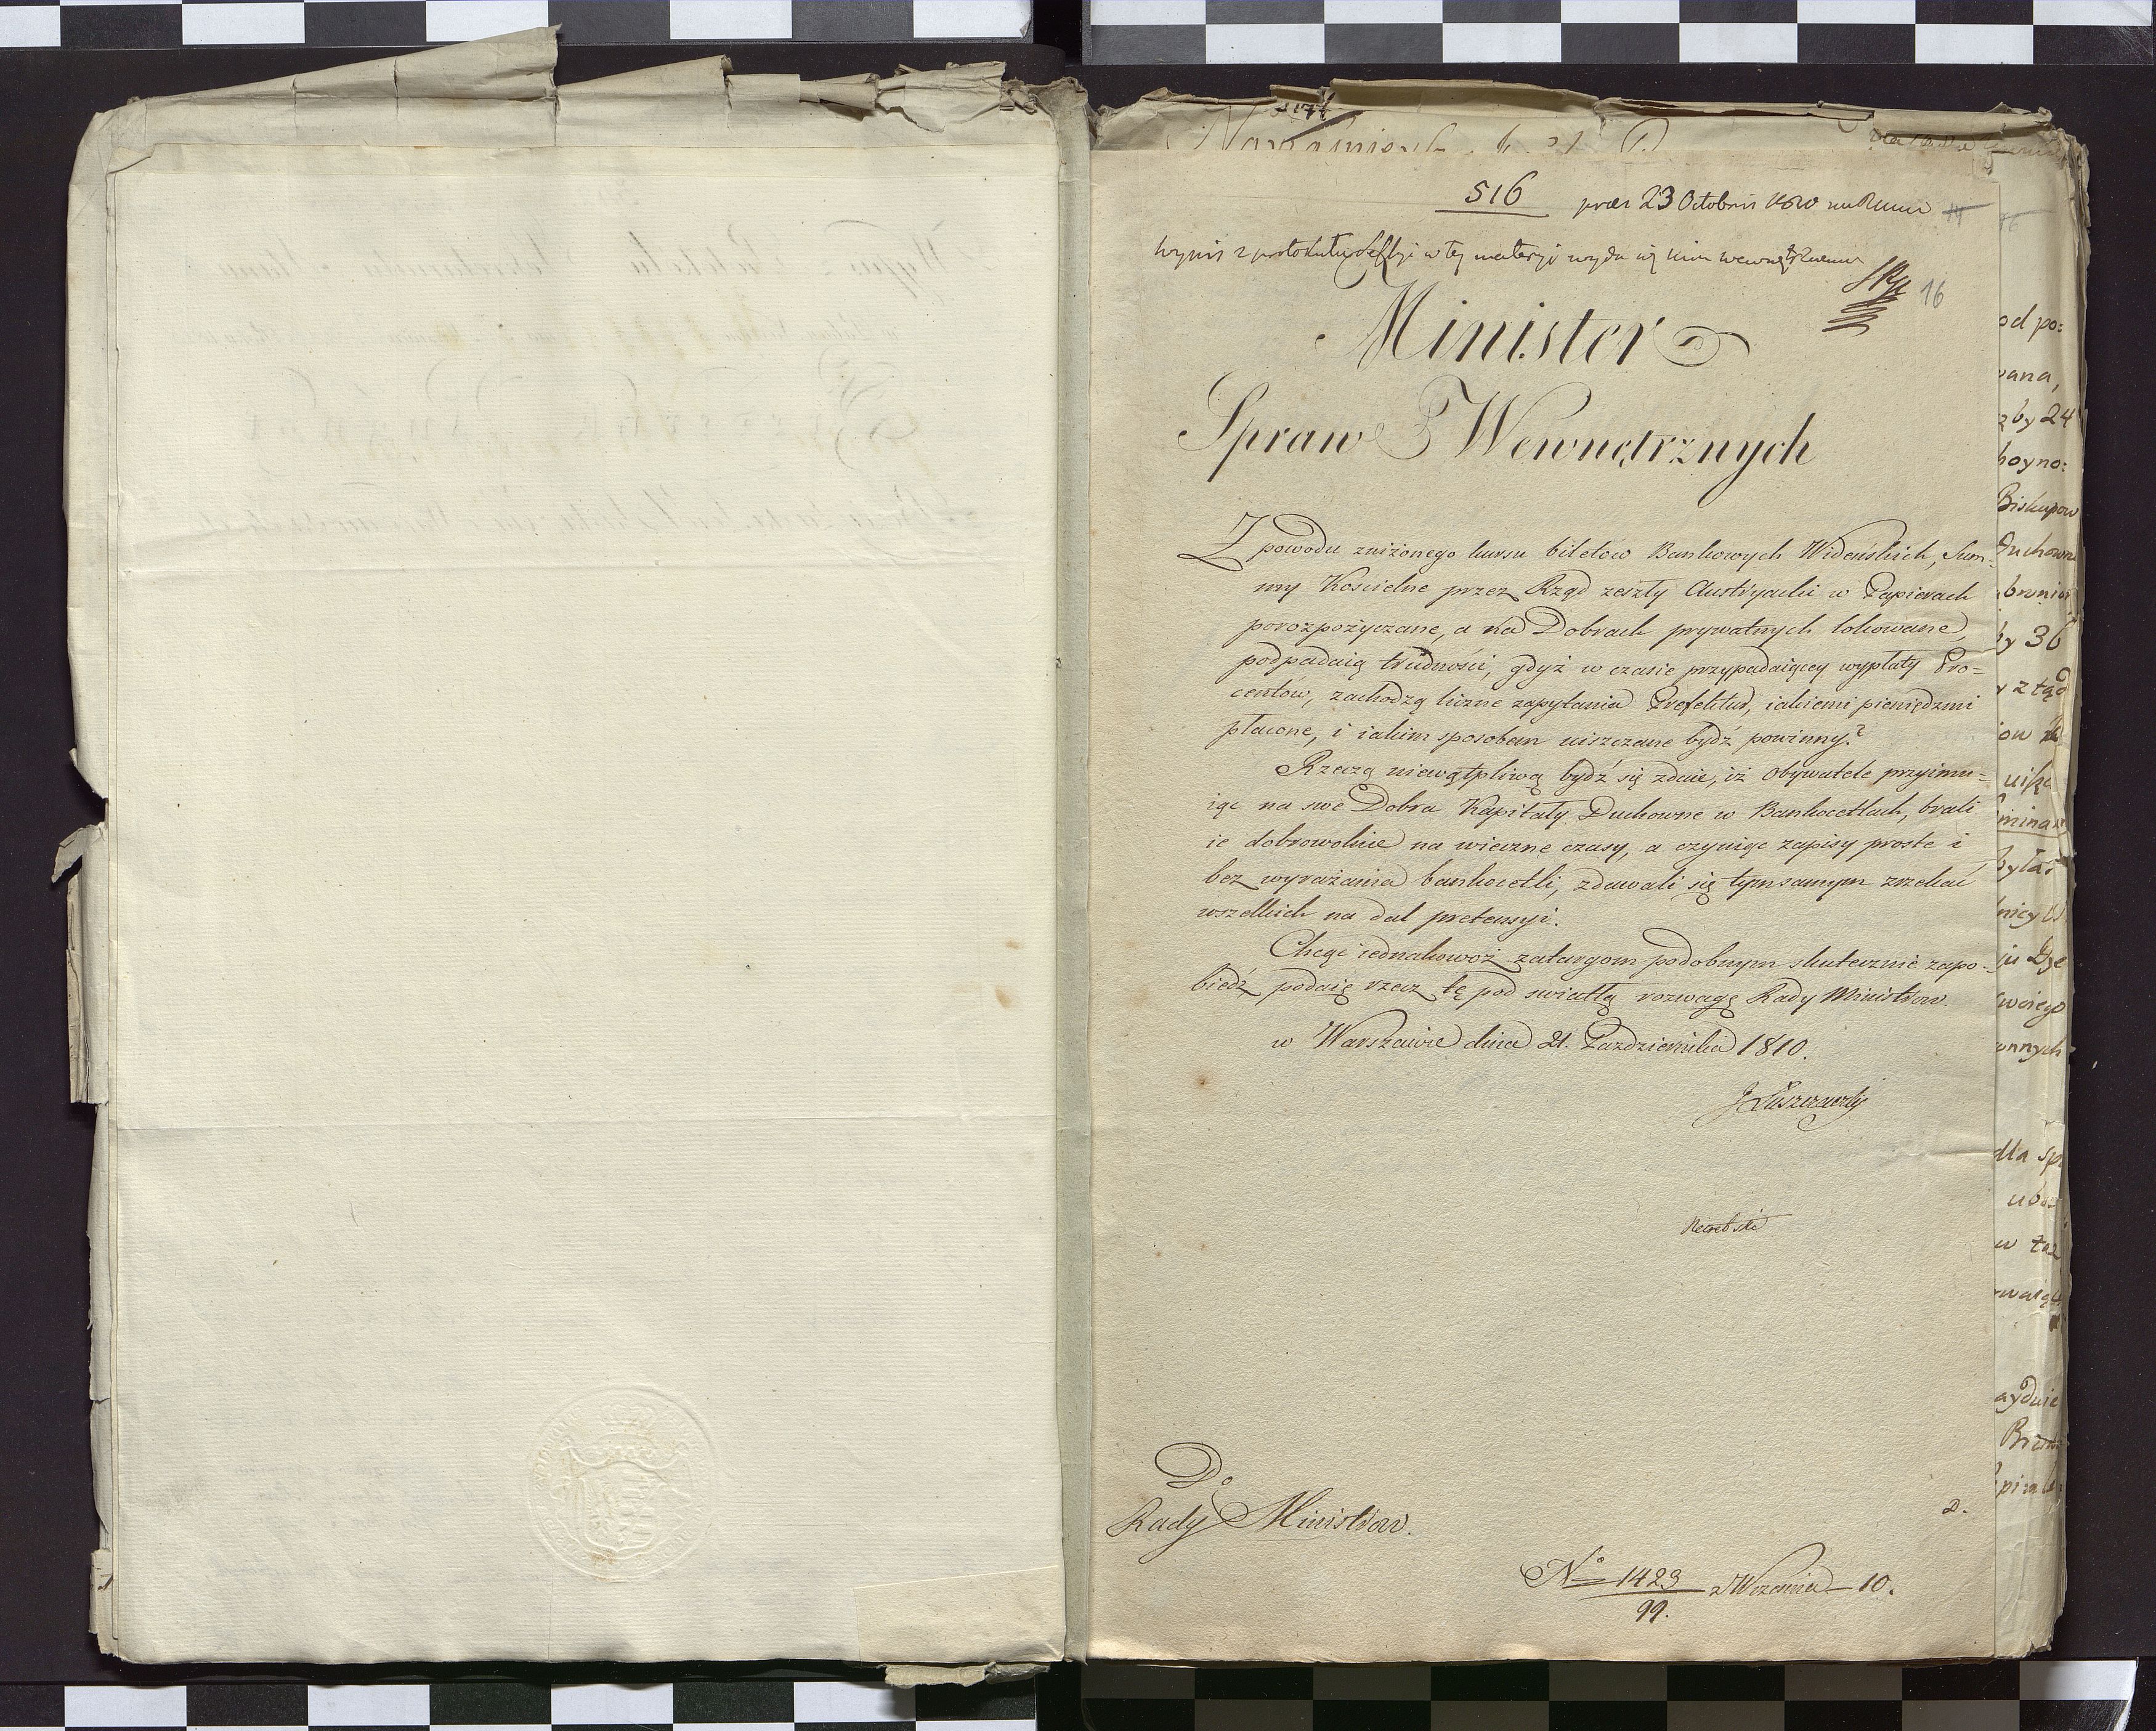 516 praes 23 Octobris 1810
wypis z protokułu Seſsyi w tey materyi wyda się
16
Minister
Spraw Wewnętrznych
Z powodu zniżonego kursu biletów Bankowych Wideńskich, Sum-
my Kościelne przez Rząd zeszły Austryacki w Papierach
porozpożyczane, a na Dobrach prywatnych lokowane,
podpadaią trudności, gdyż w czasie przypadaiącey wypłaty Pro-
centów, zachodzą liczne zapytania Prefektur, iakiemi pieniędzmi
płacone, i iakim sposobem uiszczane bydź powinny?
Rzeczą niewątpliwą bydź się zdaie, iż Obywatele przyimu-
iąc na swe Dobra Kapitały Duchowne w Bankocetlach, brali
ie dobrowolnie na wieczne czasy, a czyniąc zapisy proste i
bez wyrażania bankocetli, zdawali się tymsamym zrzekać
wszelkich na dal pretensyi.
Chcąc iednakowoż zatargom podobnym skutecznie zapo-
biedz, podaię rzecz tę pod światłą rozwagę Rady Ministrow.
w Warszawie dnia 21. Pazdziernika 1810.
J Łuszczewski
Do
Rady Ministrow.
2.
No 1423 z Września 10.
99.
od po:
wana,
zby 24
hoyno:
Biskupow
Duchowne
by 36
y z tąd
swoiego
dla